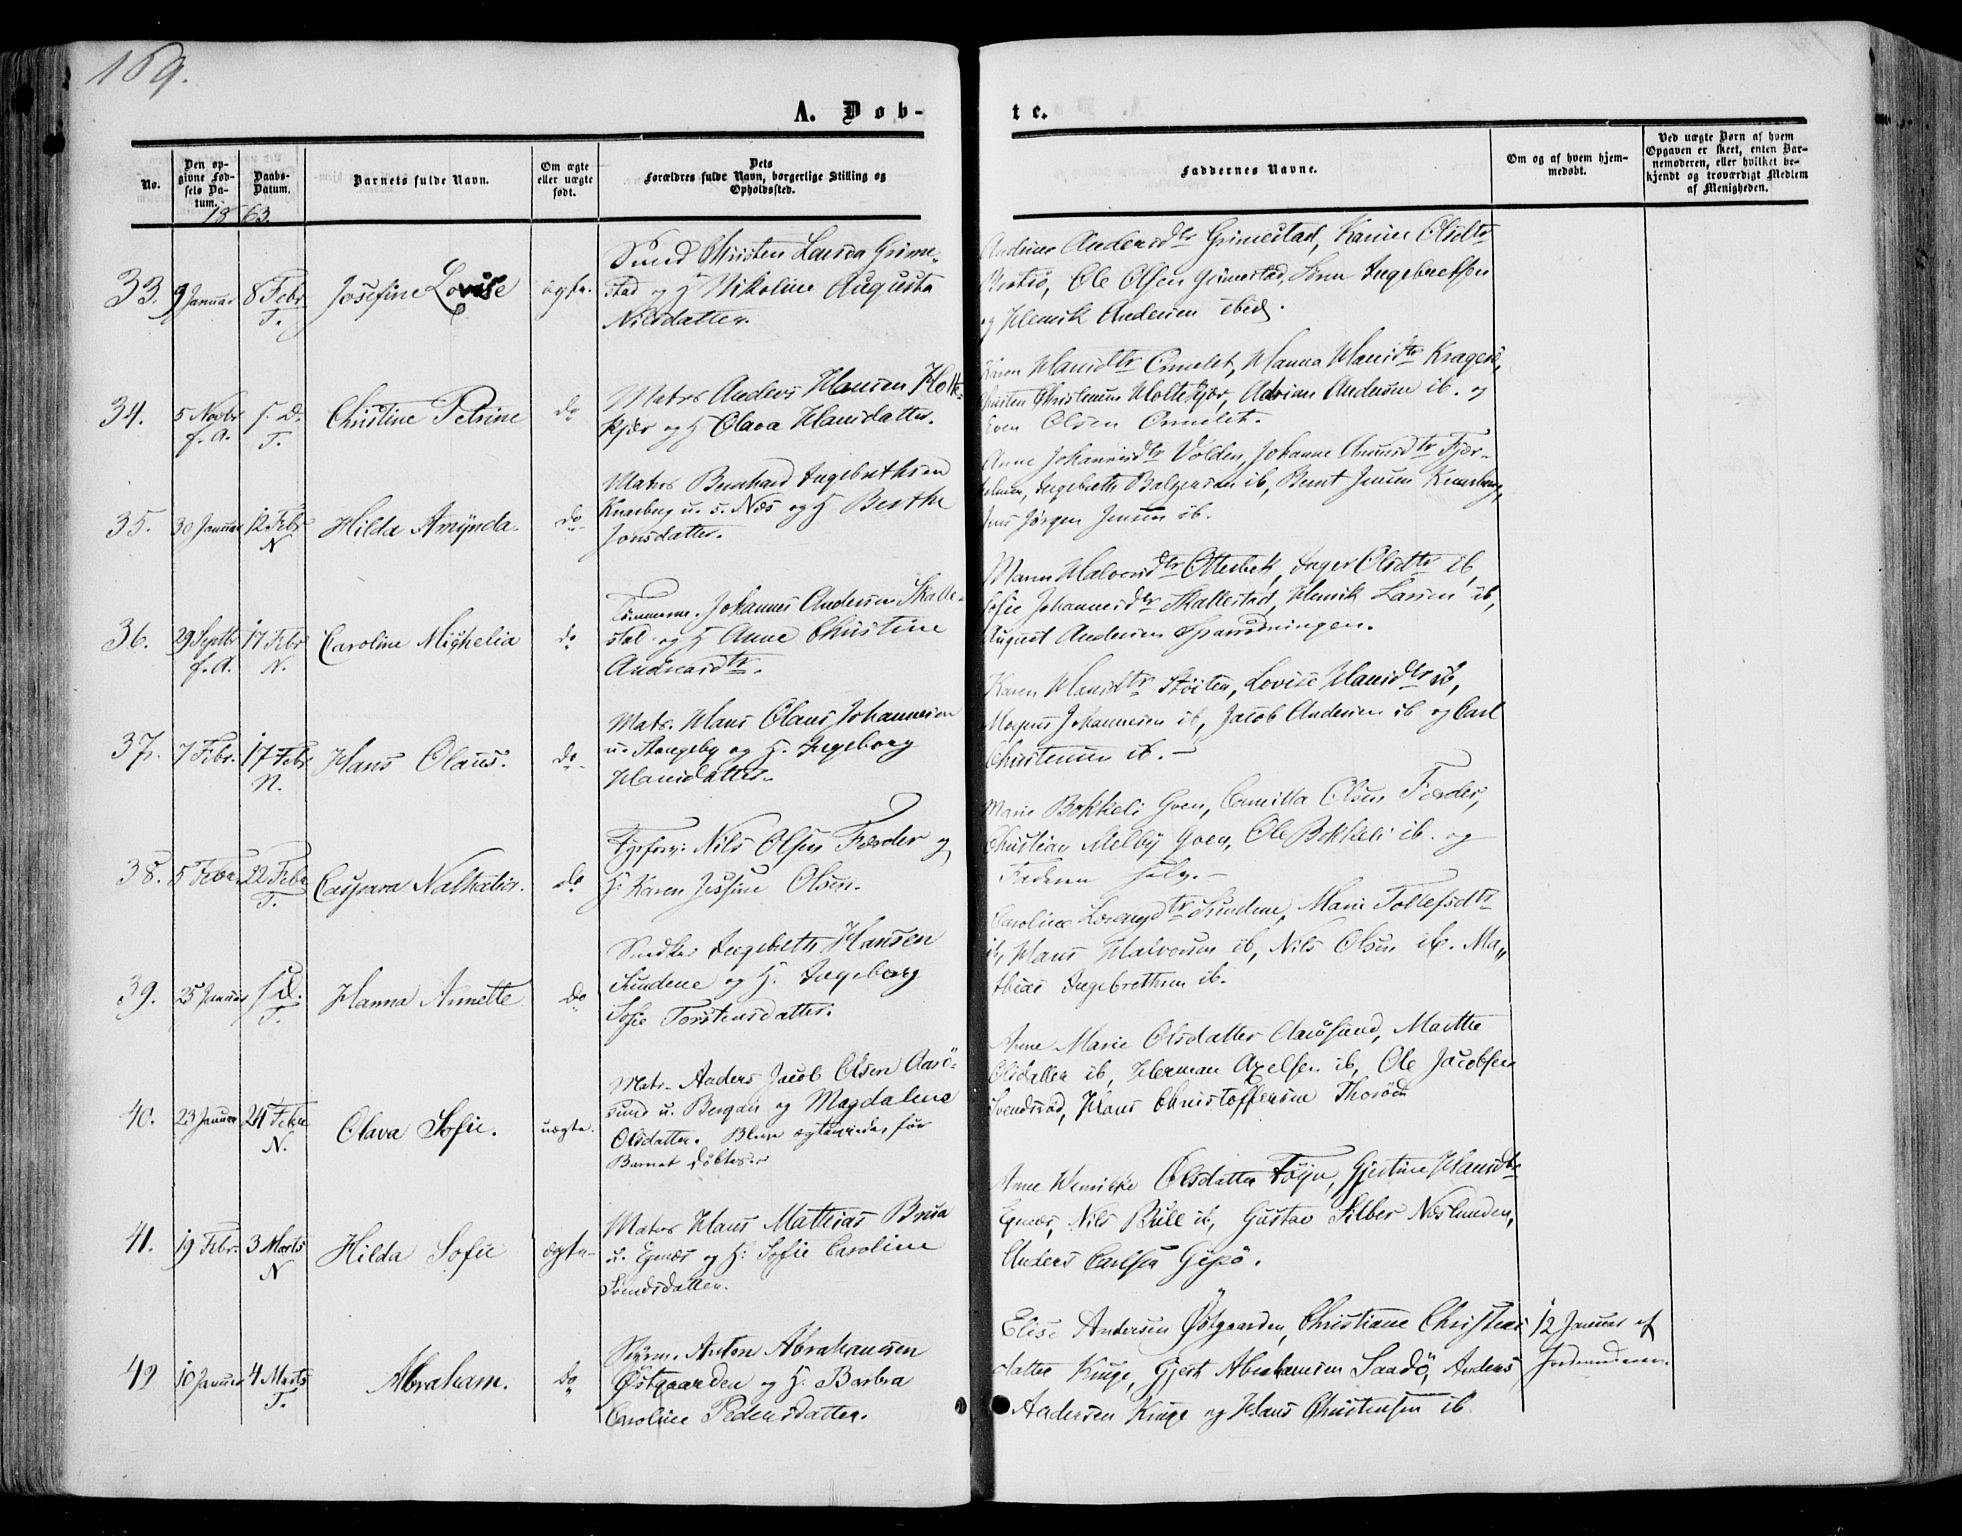 169.
A. Døb-
te.
No.
Den op-
givne Fød-
sels Da-
tum.
Daabs-
Datum.
Barnets fulde Navn.
Om ægte
eller uægte
født.
Dets
Forældres fulde Navn, borgerlige Stilling og
Opholdssted.
Faddernes Navne.
Om og af hvem hjem-
medøbt.
Ved uægte Børn af hvem
Opgaven er skeet, enten Bar-
nemoderen, eller hvilket be-
kjendt og troværdigt Medlem
af Menigheden.
1863.
33. 9 Januar 8 Febr T. Josefine Lovise ægte.
Christen Grime-
stad og H Nikoline Augusta
Nilsdatter.
Andersdtr Grimestad, Karine Olsdtr
Ole Olsen Grimestad, Ingebretsen
og Henrik Andersen ibid.
34. 5 Novbr f. A. s. D. T. Christine Petrine do
Matrs Anders Hansen Holte-
kjær og H Olava Hansdatter.
Karen Hansdtr Ormelet, Hanna Hansdtr Kragerø,
Christen Christensen Holtekjær, Andersen ib. og
Even Olsen Ormelet.
35. 30 Januar 12 Febr N Hilda Amynda do
Matrs Bernhard Ingebrethsen
Knarberg u. s. Næs og H Berthe
Jonsdatter.
Anne Johannesdtr Volden, Johanne
Ingebreth ib, Bernt Jensen Knarberg,
Jens Jørgen Jensen ib.
36. 29 Septbr f. A. 17 Febr N. Caroline Mighelia do
Tømmerm. Johannes Andersen Skalle-
stad og H Anne Christine
Maren Halvorsdtr Otterbek, Inger Olsdtr ib,
Sofie Johannesdtr Skallestad, Henrik Larsen ib,
August Andersen
37. 7 Febr. 17 Febr N. Hans Olaus. do
Matr. Hans Olaus Johannesen
u. Stangeby og H. Ingeborg
Hansdatter.
Karen Hansdtr Støiten, Lovise Hansdtr ib,
Johannesen ib, Jacob Andersen ib og Carl
Christensen ib.
38. 5 Febr. 22 Febr T. Caspara Nathalia. do
Fyrforv: Nils Olsen Færder og
H: Karen Olsen.
Marie Bokkeli Camilla Olsen Færder,
Christian Melby Ole Bokkeli ib. og
Faderen selv.
39. 25 Januar s. d. T. Hanna Annette do
Snedker Ingebreth Hansen
Sundene og H. Ingeborg
Sofie Torstensdatter.
Caroline Sundene, Marie Tollefsdtr
ib, Hans Halvorsen ib, Nils Olsen ib. Ma-
thias Ingebrethsen ib.
40. 23 Januar 24 Febr N. Olava Sofie. uægte.
Matr. Anders Jacob Olsen Aarø-
sund u. Bergan og Magdalene
Olsdatter. før
Barnet døbtes.
Anne Marie Olsdatter Aarøsund, Marthe
Olsdatter ib, Herman Axelsen ib, Ole Jacobsen
Svendsrød, Hans Christoffersen Thorød
41. 19 Febr. 3 Marts N Hilda Sofie ægte
Matrs Hans Mathias
u. Egenæs og H: Sofie Caroline
Svendsdatter.
Olsdatter Føyn, Gjertine Hansdtr
Egenæs, Nils Bull ib, Gustav Silber
Anders Carlsen Gipø.
42 10 Januar 4 Marts T. Abraham. do
Anton Abrahamsen
Østgaarden og H: Barbra
Caroline Pedersdatter.
Elise Andersen Østgaarden, Christiane Christians-
datter Kruge, Gjert Abrahamsen Sandø, Anders
Andersen Kruge og Hans Christensen ib
12 Januar af